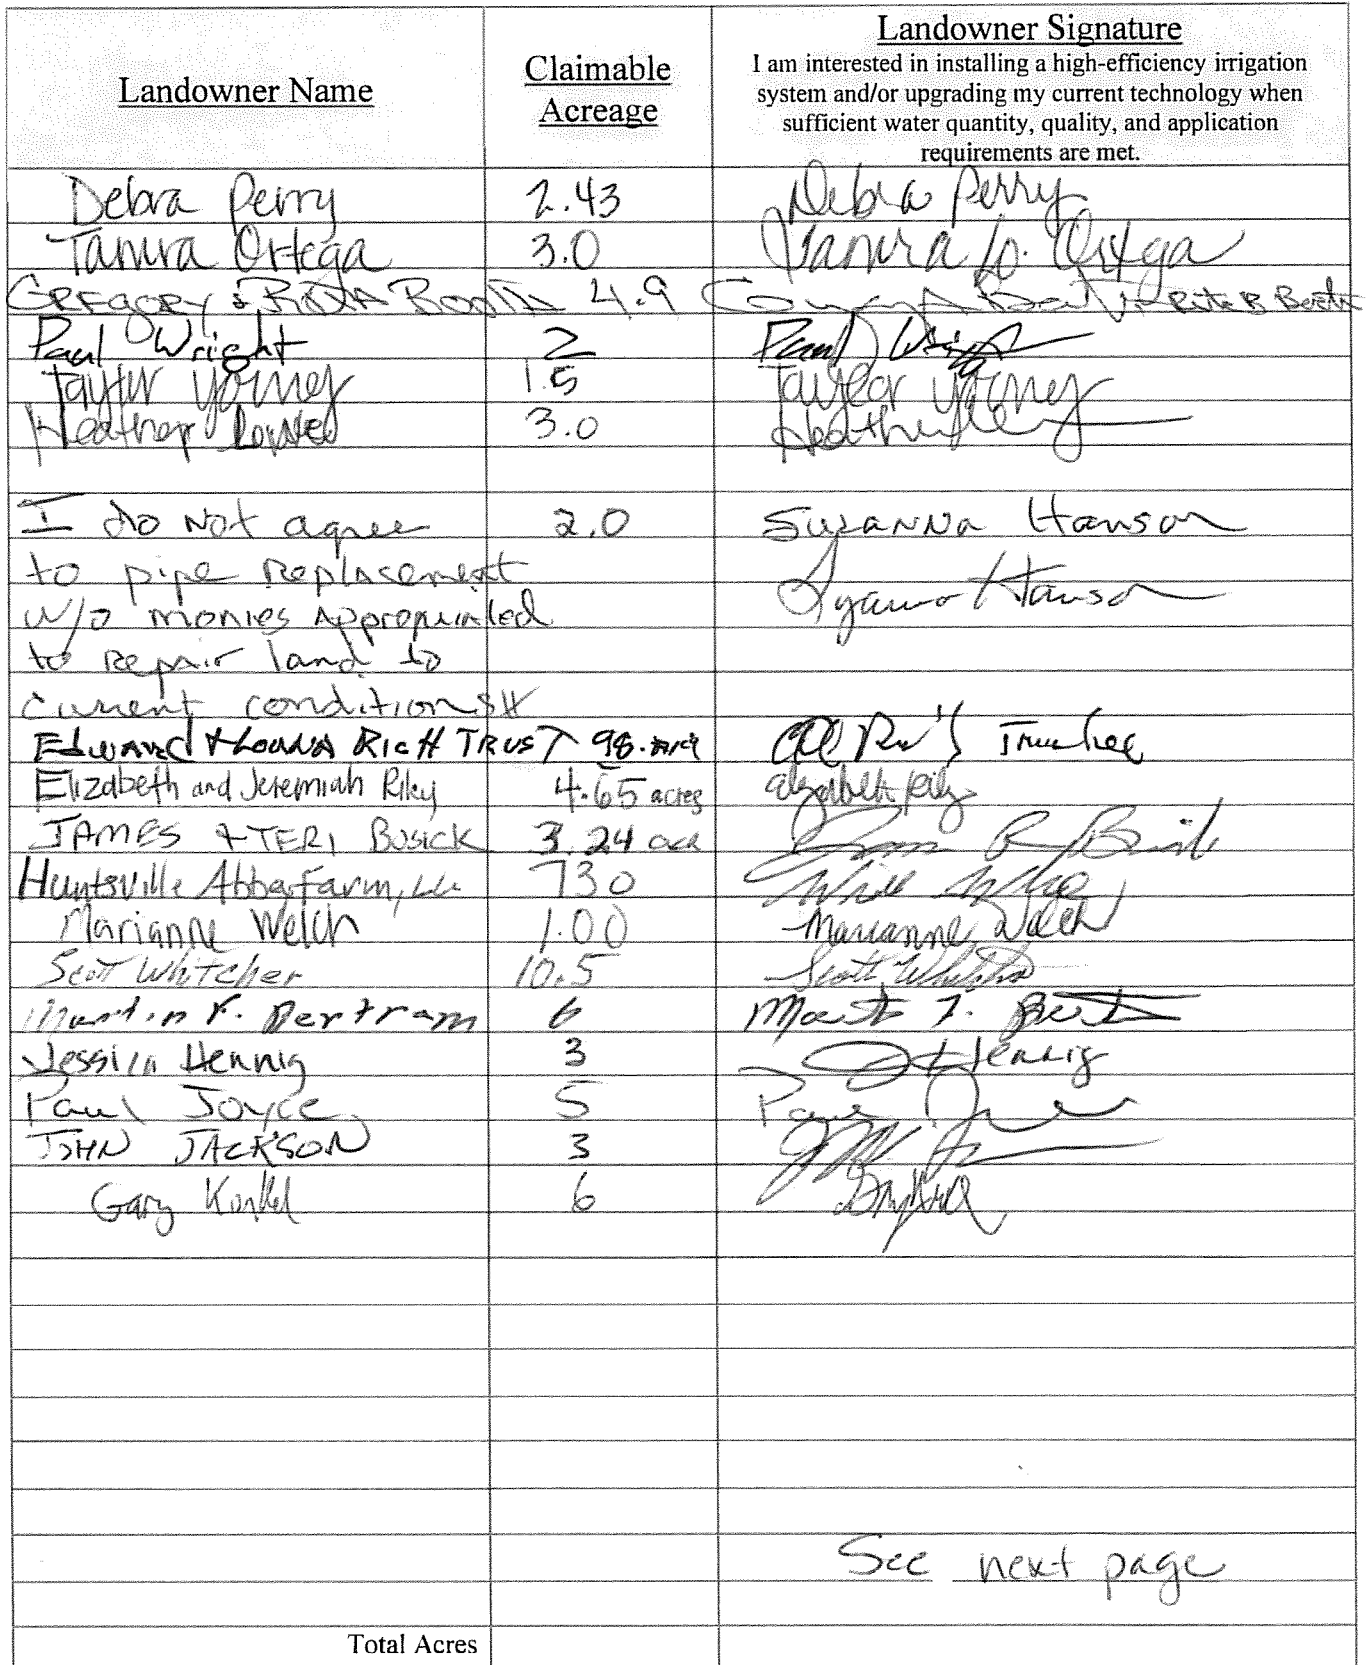 Landowner Name
Claimable
Acreage
Landowner Signature
I am interested in installing a high-efficiency irrigation
system and/or upgrading my current technology when
sufficient water quantity, quality, and application
requirements are met.
Debra Perry 2.43 Debra Perry
Tamra Ortega 3.0 Tamra Lo. Ortega
GREGORY & RITA 4.9 Rita B
Paul Wright 2 Paul Wright
Taylor Yorney 1.5 Taylor Yorney
Heather 3.0 Heather
I do Not agree 2.0 Suzanna Hanson
to pipe Replacement
w/o monies Appropriated Hanson
to Repair land to
current conditions
EDWARD & LOUNA RICH TRUST 98. Trustee
Elizabeth and Jeremiah Riley 4.65 acres Elizabeth Riley
JAMES & TERI BUSICK 3.24
Huntsville Abbey Farm, LLC 730
Marianne Welch 1.00 Marianne Welch
Scott Whitcher 10.5 Scott Whitcher
Martin F. Bertram 6 F.
Jessica Hennig 3 J Hennig
Paul Joyce 5 Paul
JOHN JACKSON 3
Gary Konkel 6
See next page
Total Acres